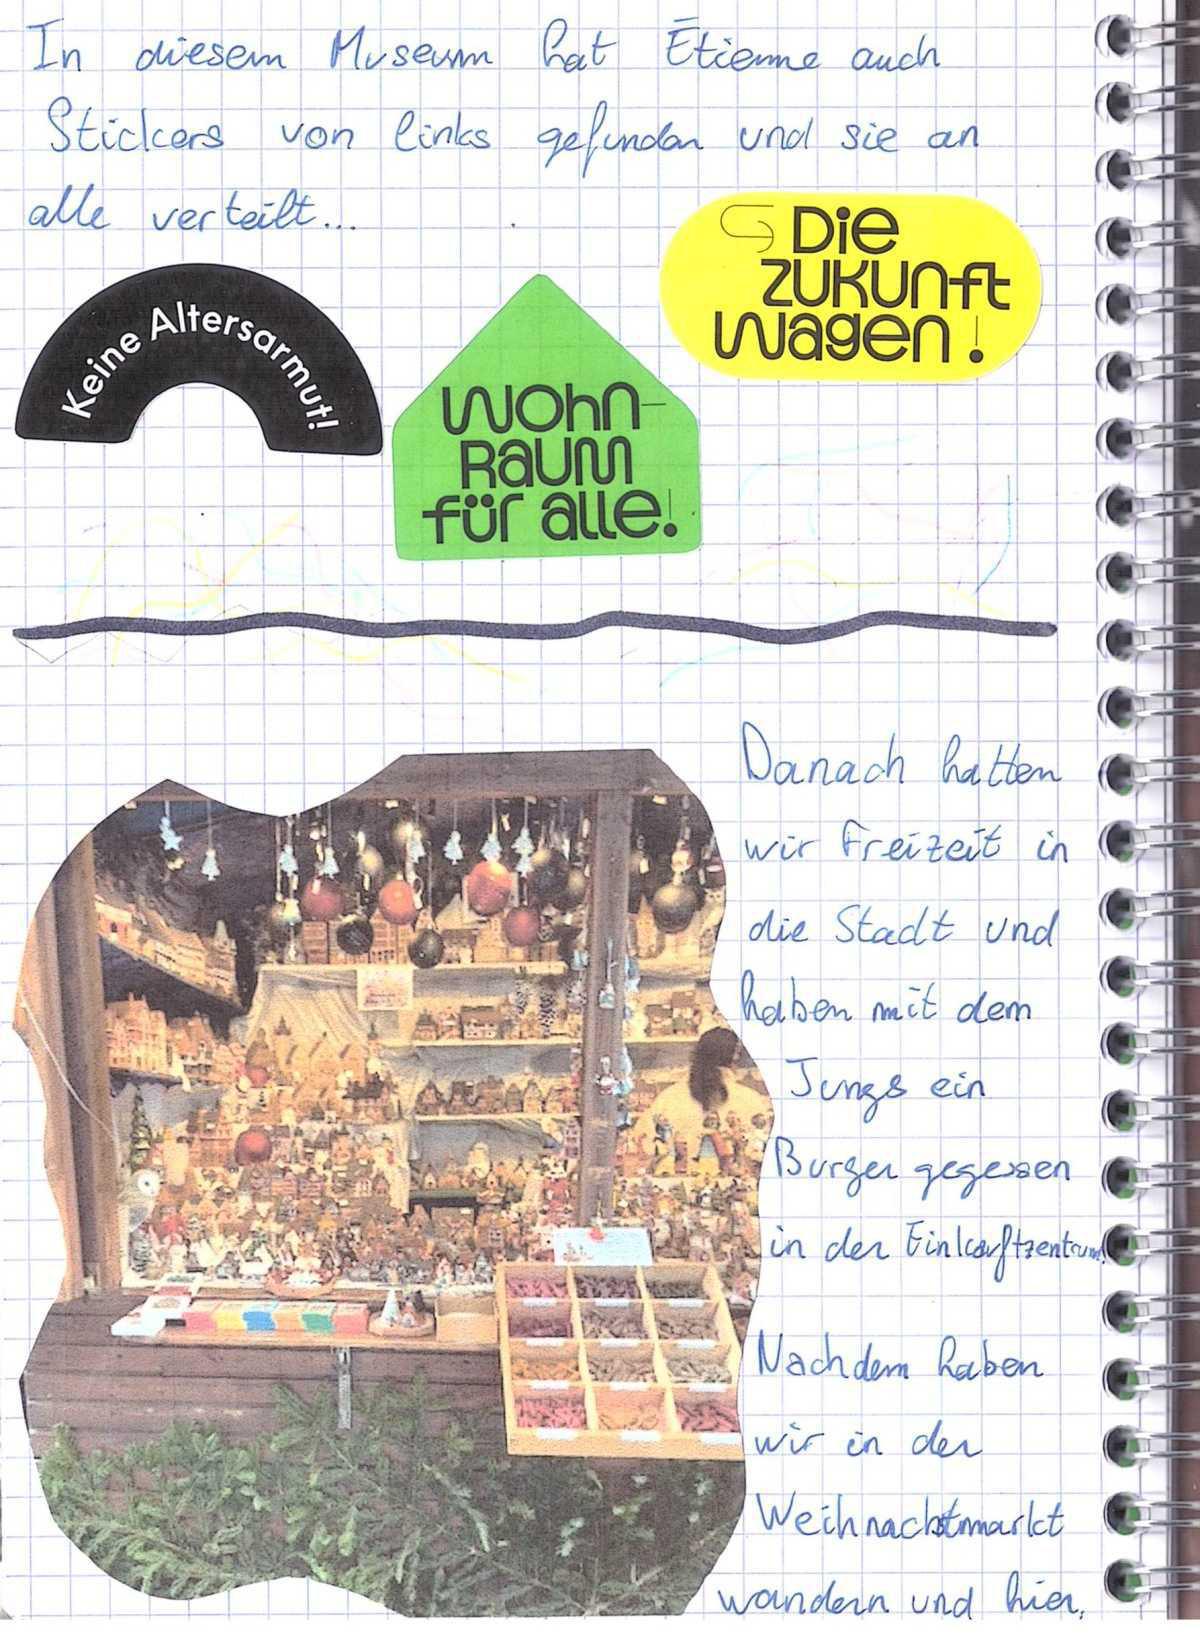 In diesem Museum hat Étienne auch
Stickers von links gefunden und sie an
alle verteilt...
Die
Zukunft
wagen!
Keine Altersarmut!
Wohn-
Raum
für alle!
Danach hatten
wir Freizeit in
die Stadt und
haben mit dem
Jungs ein
Burger gegessen
in der Einkauftzentrum.
Nachdem haben
wir in der
Weihnachtmarkt
wandern und hier,